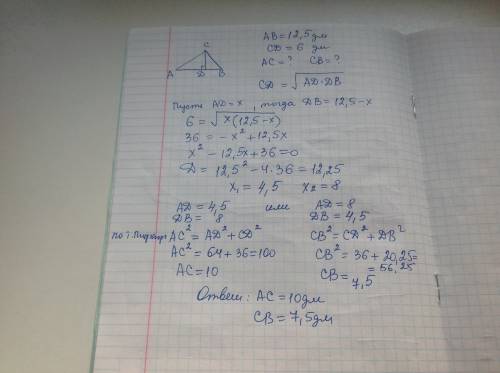 AB = 12,5 дм
CD = 6 дм
AC = ? CB = ?
C
A D B
CD = √AD·DB
Пусть AD = x, тогда DB = 12,5 - x
6 = √x(12,5 - x)
36 = -x² + 12,5x
x² - 12,5x + 36 = 0
D = 12,5² - 4·36 = 12,25
x₁ = 4,5 x₂ = 8
AD = 4,5 или AD = 8
DB = 8 DB = 4,5
по т. Пифагора AC² = AD² + CD² CB² = CD² + DB²
AC² = 64 + 36 = 100 CB² = 36 + 20,25 =
= 56,25
AC = 10 CB = 7,5
Ответ: AC = 10 дм
CB = 7,5 дм